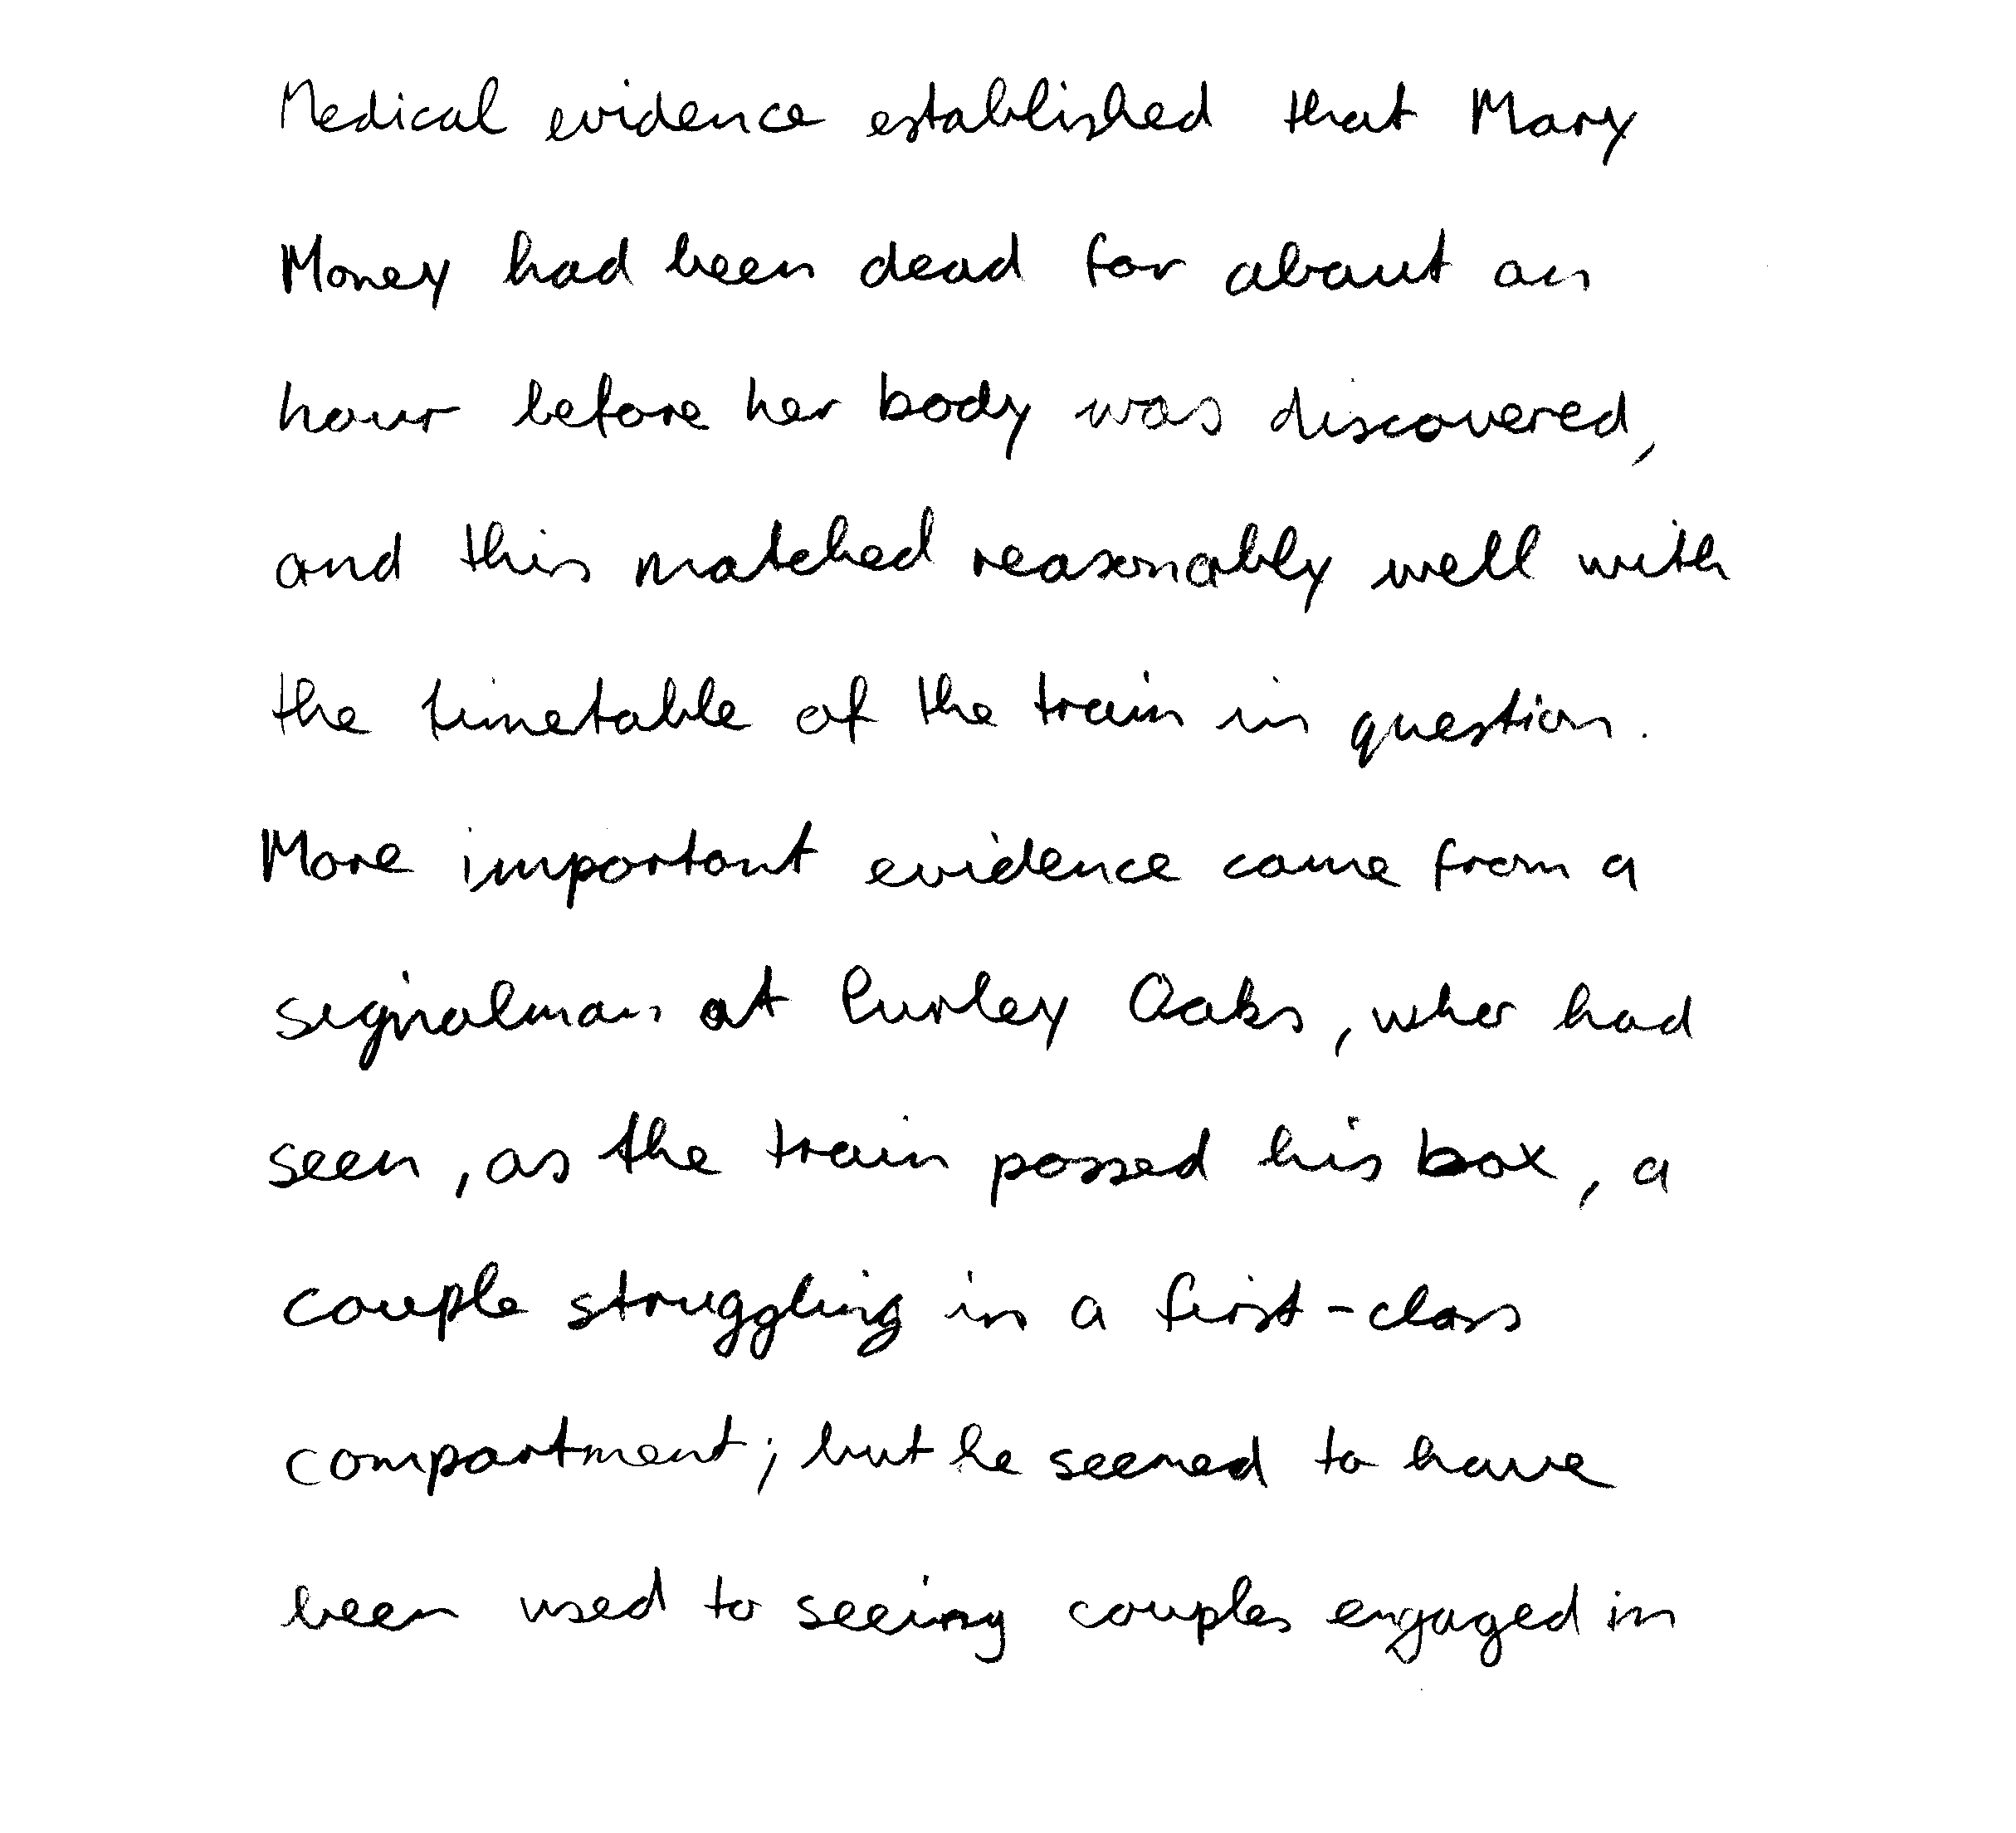 Medical evidence established that Mary
Money had been dead for about an
hour before her body was discovered,
and this matched reasonably well with
the timetable of the train in question.
More important evidence came from a
signalman at Purley Oaks, who had
seen, as the train passed his box, a
couple struggling in a first-class
compartment; but he seemed to have
been used to seeing couples engaged in